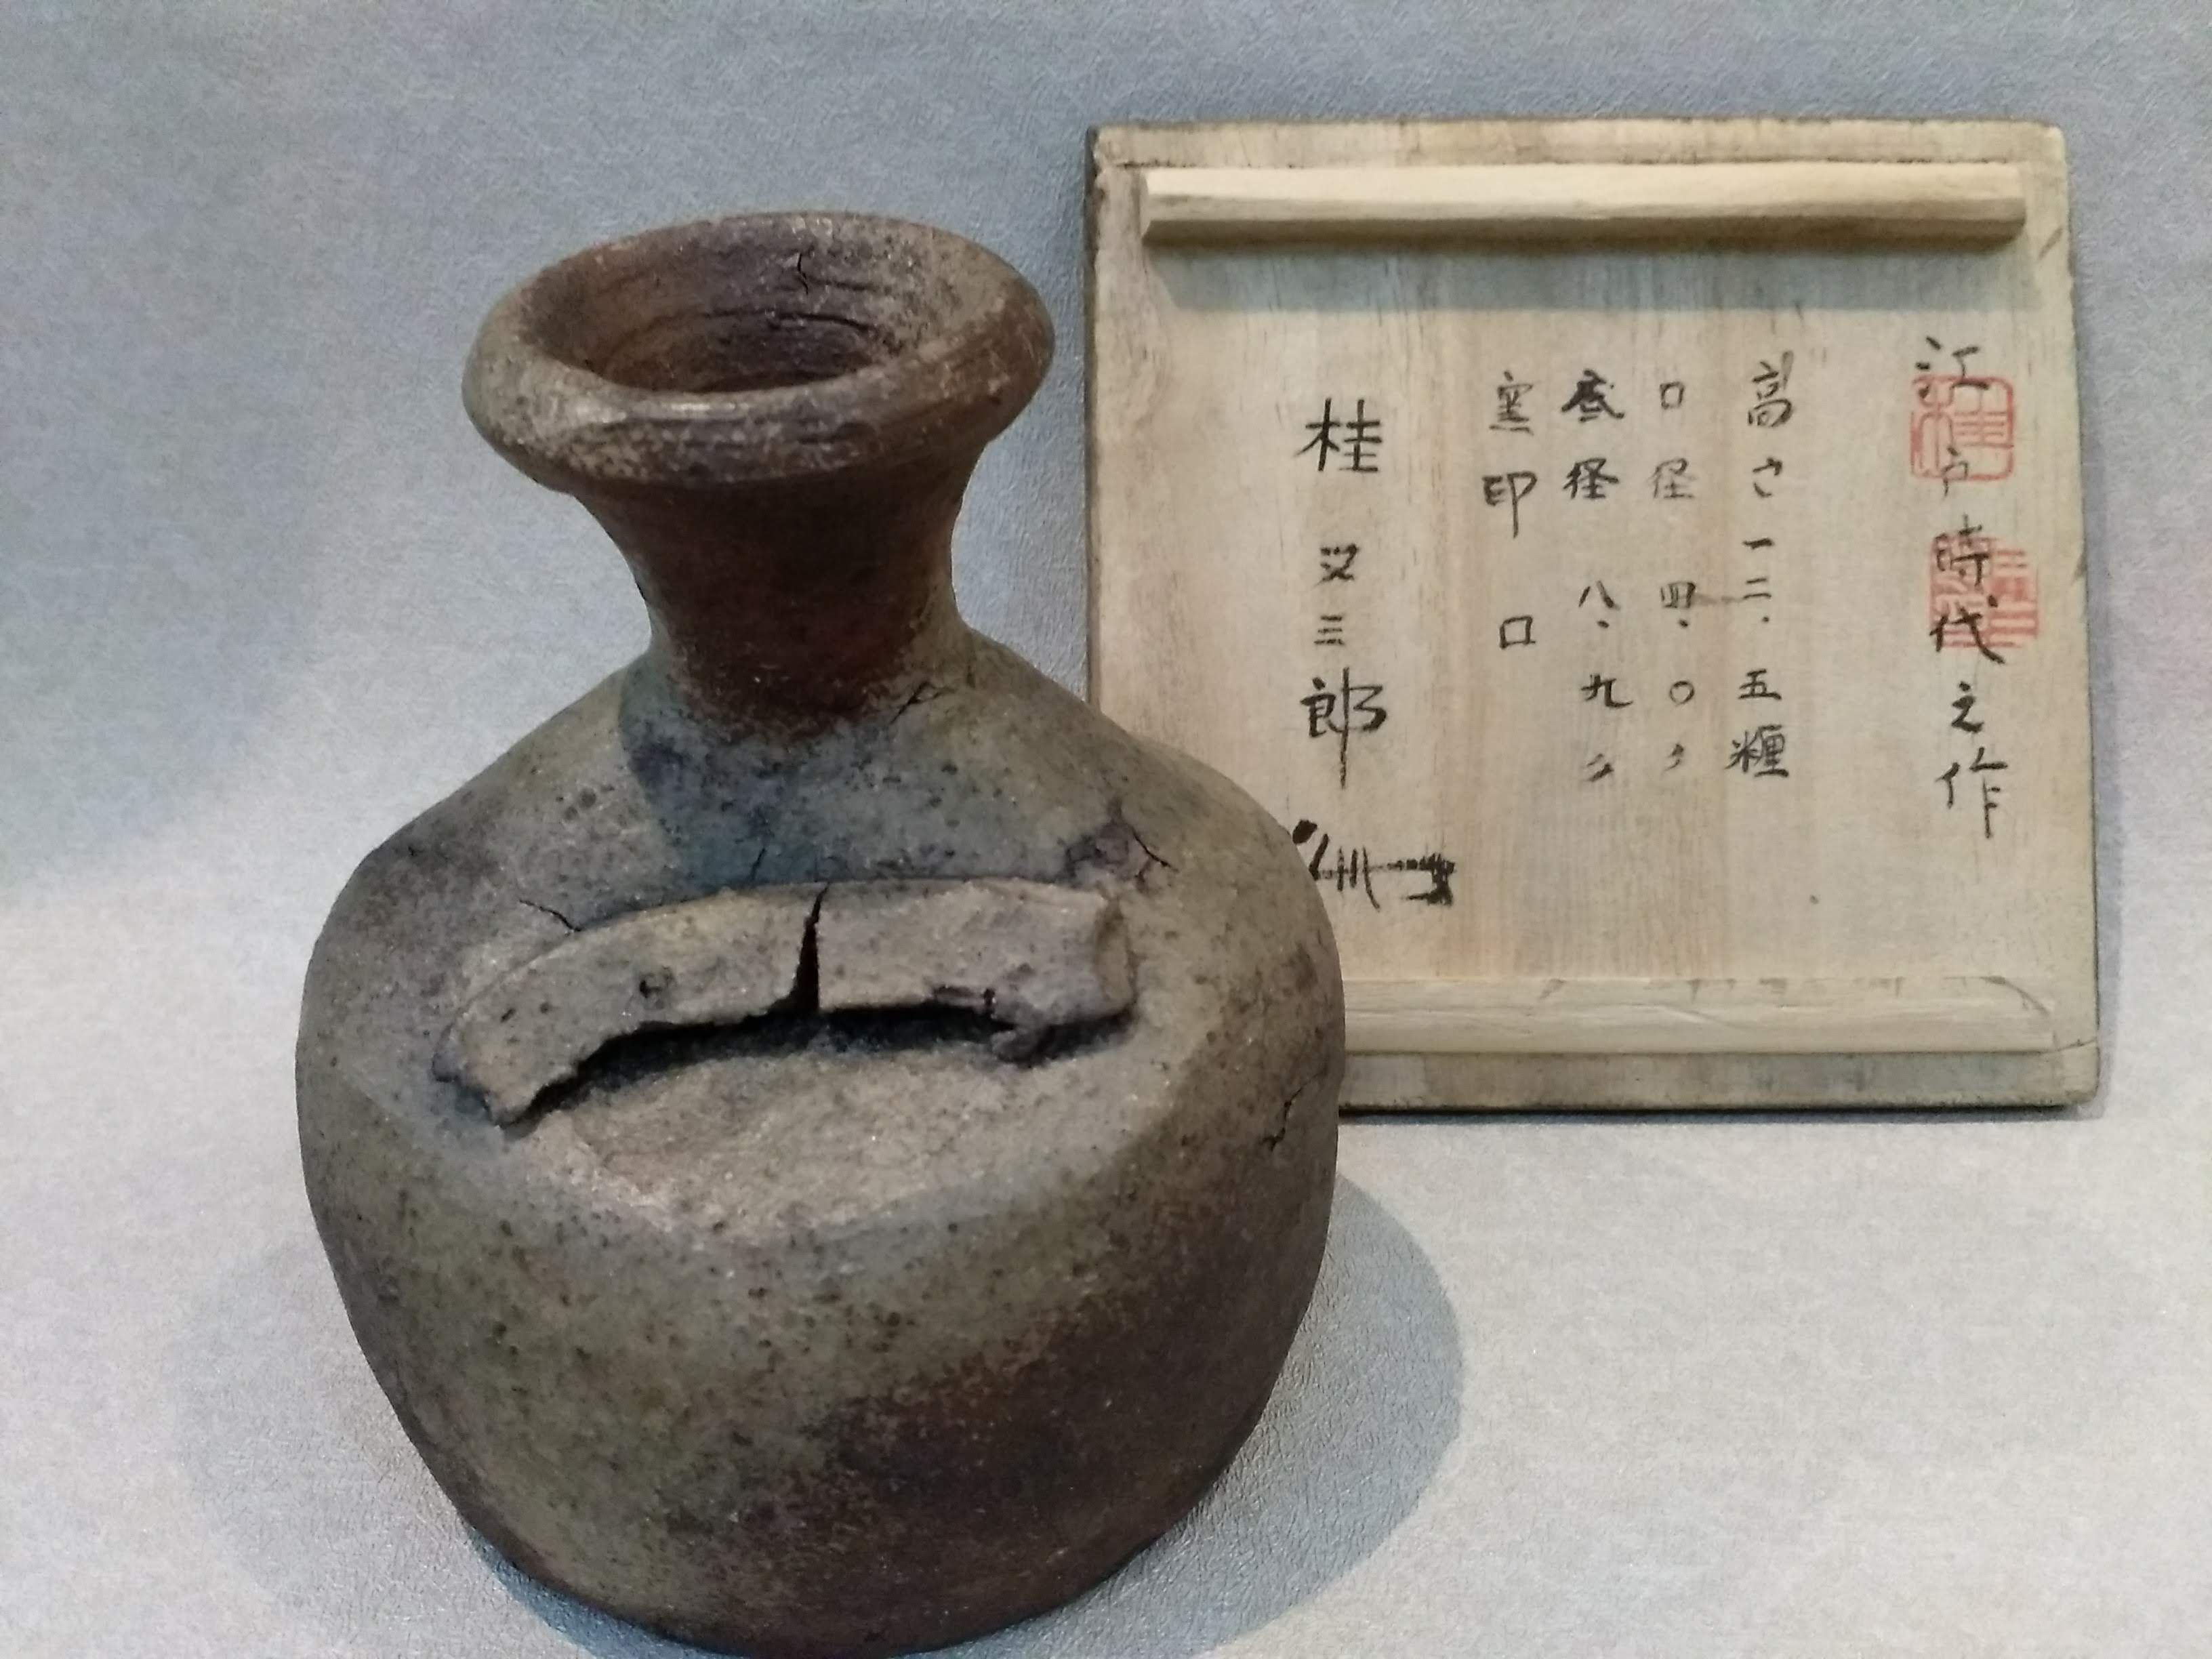 江戸時代之作
高さ一二.五糎
口径 四.〇〃
底径 八.九〃
窯印 口
桂又三郎